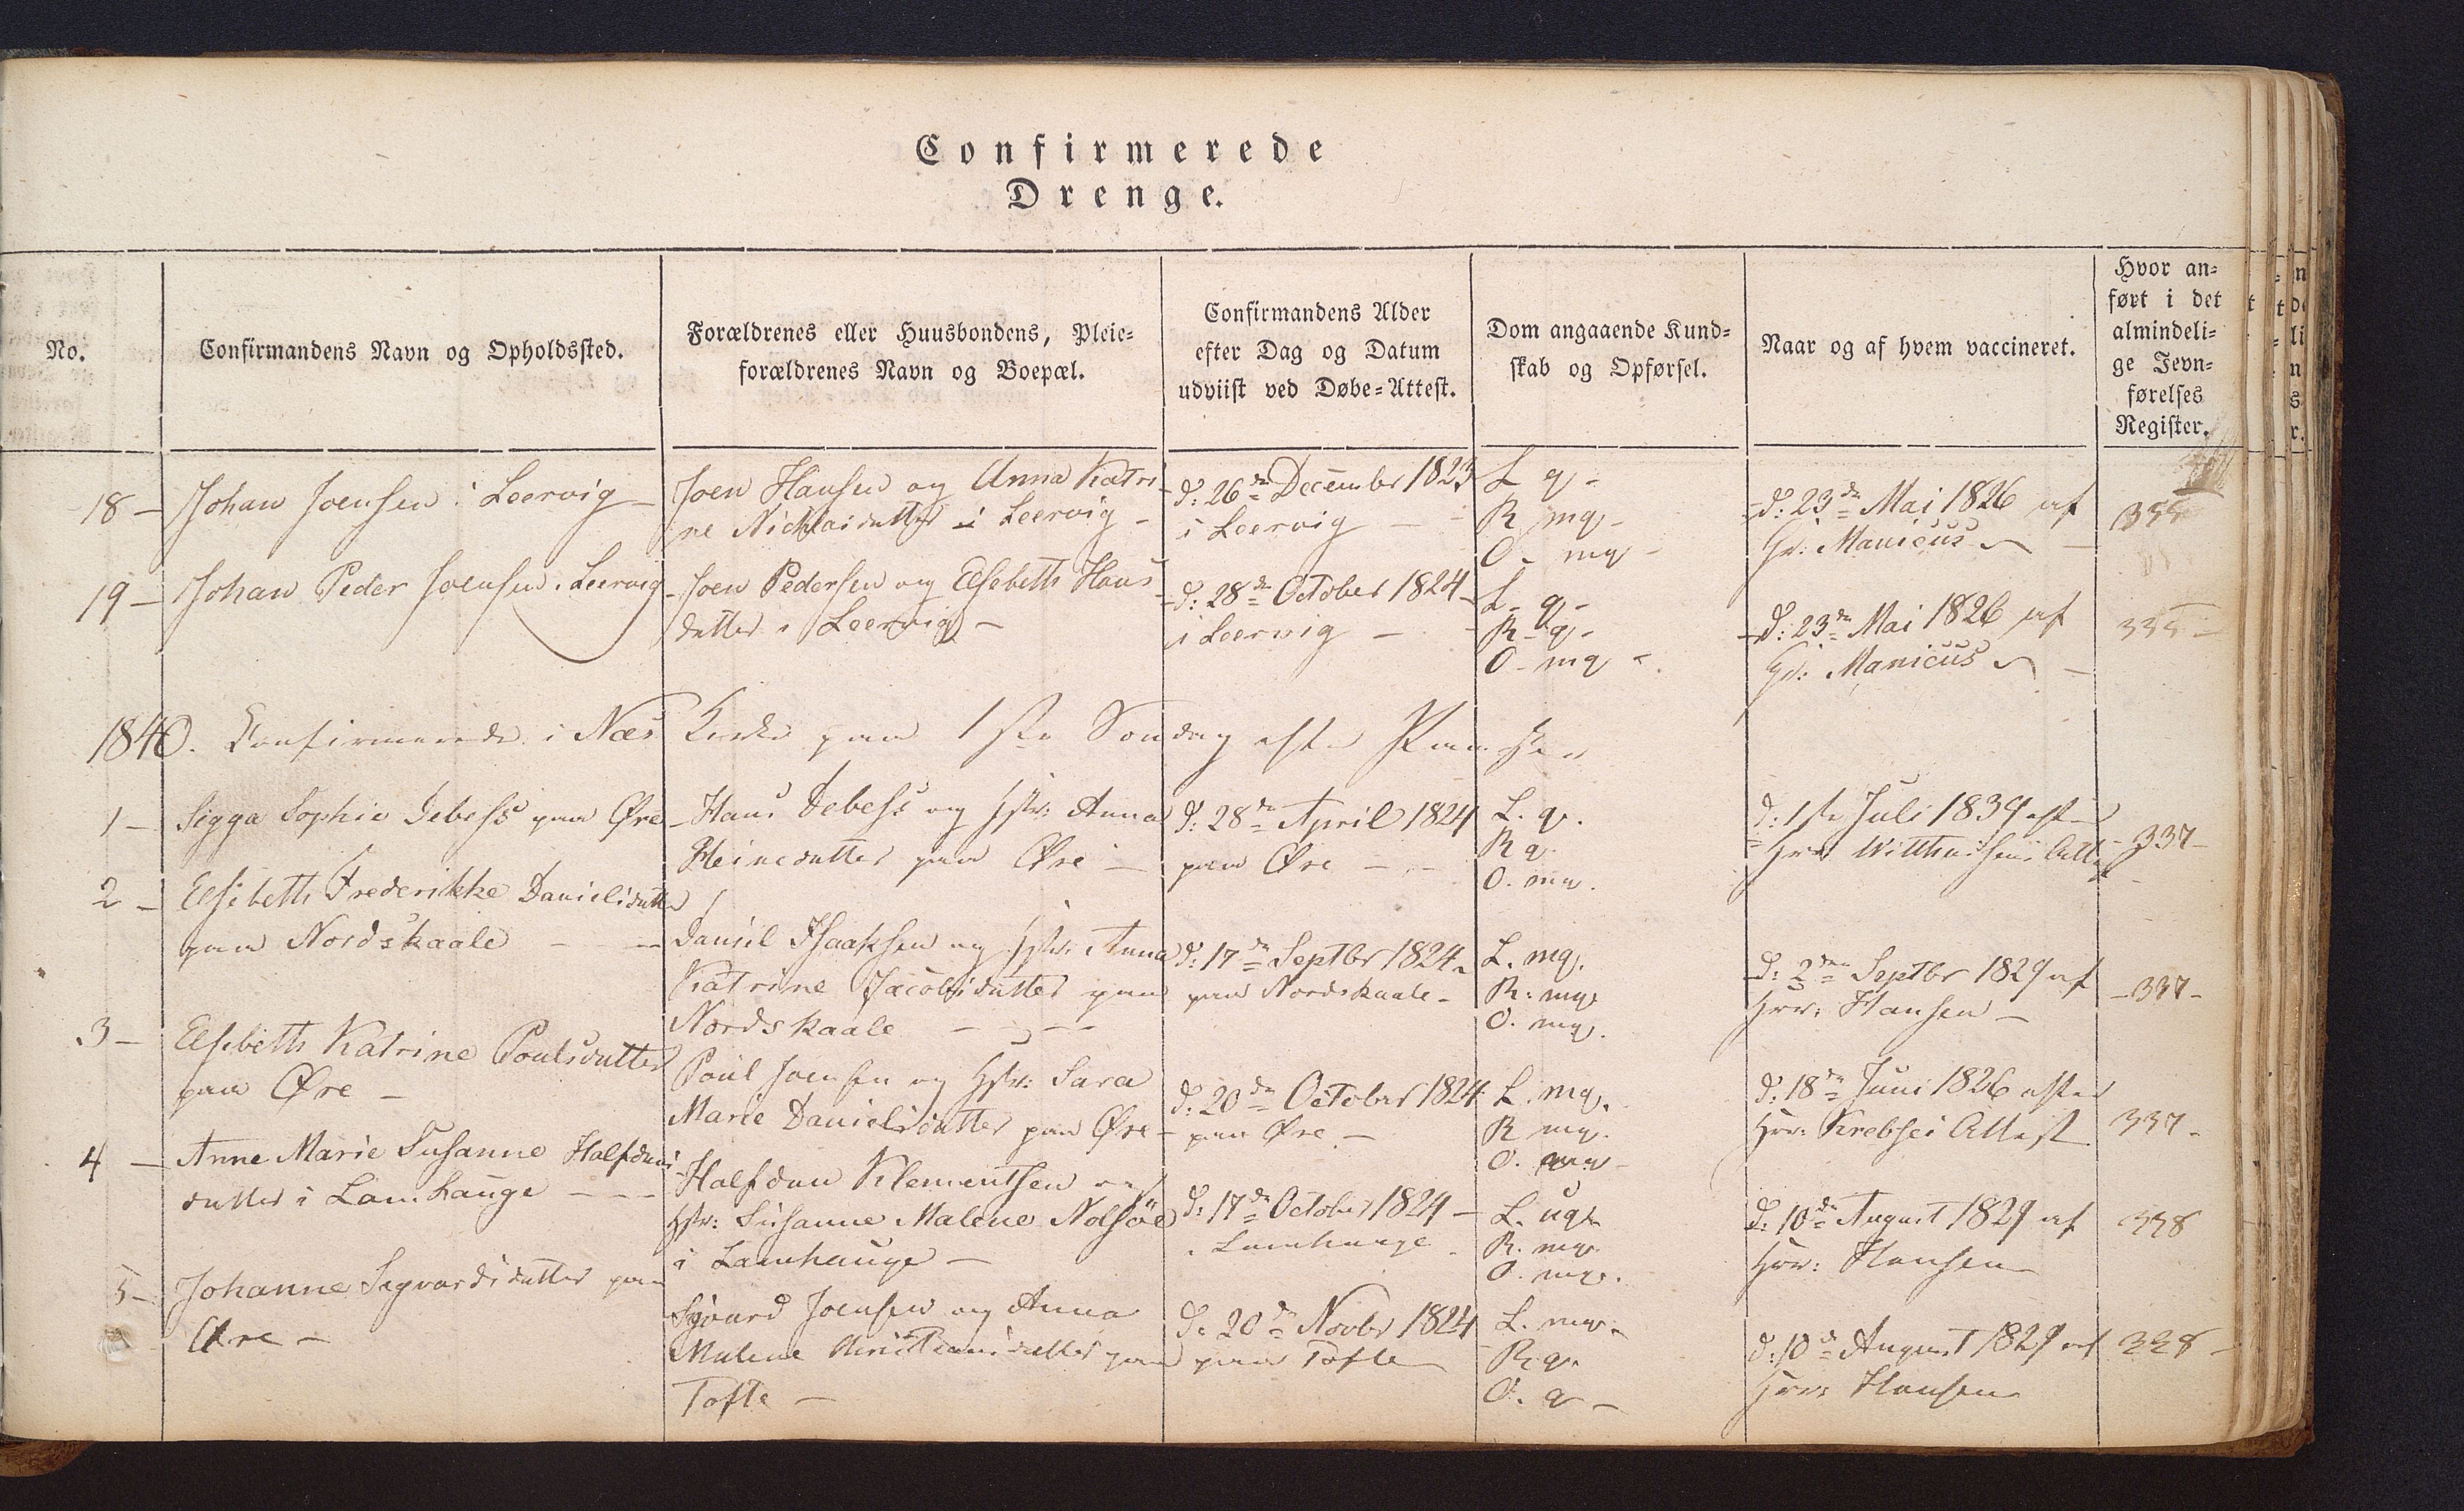 Confirmerede
Drenge.
No.
Confirmandens Navn og Opholdssted.
Forældrenes eller Huusbondens, Pleie-
forældrenes Navn og Boepæl.
Confirmandens Alder
efter Dag og Datum
udviist ved Døbe-Attest.
Dom angaaende Kund-
skab og Opførsel.
Naar og af hvem vaccineret.
Hvor an-
ført i det
almindeli-
ge Jevn-
førelses
Register.
18 - Johan Joensen i Leervig -
Joen Hansen og Anna Katri-
ne Nicklaidatter i Leervig -
d: 26de December 1823
i Leervig -
L g -
R mg -
O - mg -
d: 23de Mai 1826 af
Hr: Manicus
335
19 - Johan Peder Joensen i Leervig
Joen Pedersen og Elsebeth Hans
datter i Leervig -
d: 28de October 1824 -
i Leervig -
L - g -
R - g -
O - mg -
d: 23de Mai 1826 af
Hr: Manicus
335 -
1840. Confirmerede i Næs Kirke paa 1ste Søndag efter Paaske
1 - Sigga Sophie Debess paa Øre
Hans Debess og Hstr: Anna
Heinedatter paa Øre -
d: 28de April 1824
paa Øre -
L. g.
R g.
O. mg.
d: 1ste Juli 1839 efter
Hrr Attest
337 -
2 - Elsebeth Frederikke Danielsdatter
paa Nordskaale -
Daniel Isaaksen og Hstr: Anna
Katrine Jacobsdatter paa
Nordskaale -
d: 17de Septbr 1824 -
paa Nordskaale -
L. mg.
R. mg.
O. mg.
d: 2den Septbr 1829 af
Hrr: Hansen -
- 337 -
3 - Elsebeth Katrine Poulsdatter
paa Øre -
Poul Joensen og Hstr: Sara
Marie Danielsdatter paa Øre -
d: 20de October 1824
paa Øre -
L. mg.
R mg.
O. mg -
d: 18de Juni 1826 efter
Hrr: Krebses Attest
337 -
4 - Anne Marie Susanne Halfdans
datter i Lamhauge -
Halfdan Klementsen og
Hstr: Susanne Malene Nolsöe
i Lamhauge -
d: 17de October 1824 -
i Lamhauge -
L. ug.
R. mg.
O. mg.
d: 10de August 1829 af
Hrr: Hansen
338
5 - Johanne Sigvardsdatter paa
Øre -
Sigvard Joensen og Anna
Malene Christiansdatter paa
Tofte -
d: 20de Novbr 1824
paa Tofte
L. mg.
R. g.
O. g -
d: 10de August 1829 af
Hrr: Hansen
338 -